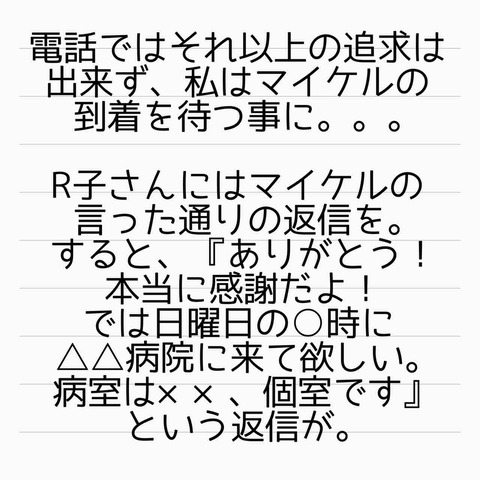 電話ではそれ以上の追求は
出来ず、私はマイケルの
到着を待つ事に。。。
R子さんにはマイケルの
言った通りの返信を。
すると、『ありがとう！
本当に感謝だよ！
では日曜日の○時に
△△病院に来て欲しい。
病室は××、個室です』
という返信が。